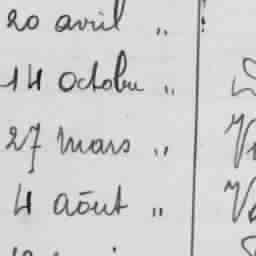 20 avril "
14 octobre "
27 mars "
4 août "